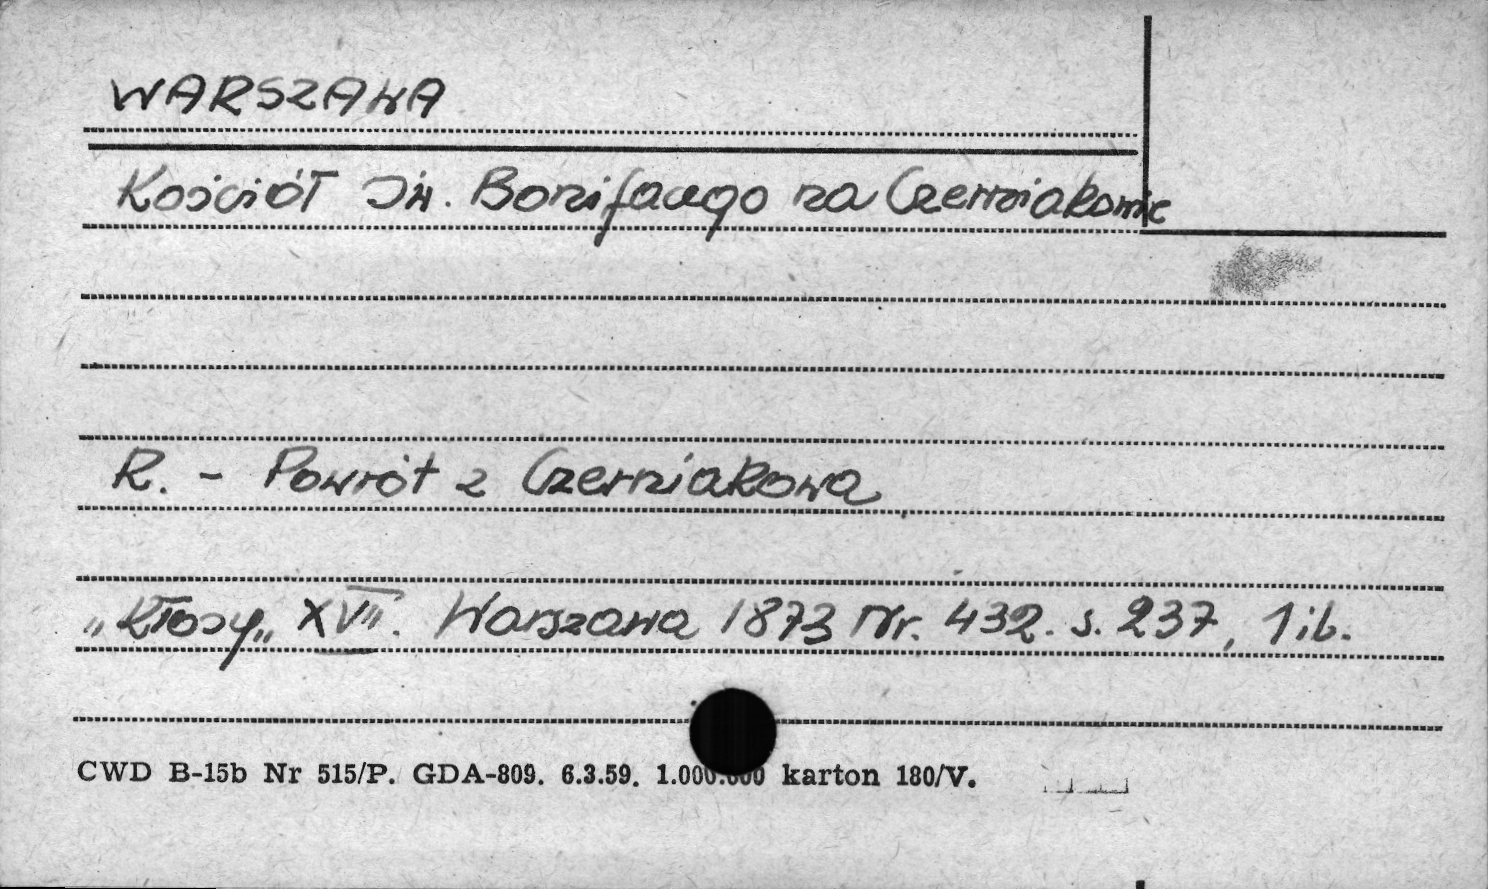 WARSZAWA
Kościół Św. Bonifacego na Czerniakowie
R. - Powrót z Czerniakowa
„Kłosy„ XVII. Warszawa 1873 Nr. 432. s. 237, 1 il.
CWD B-15b Nr 515/P. GDA-809. 6.3.59. 1.000.000 karton 180/V.